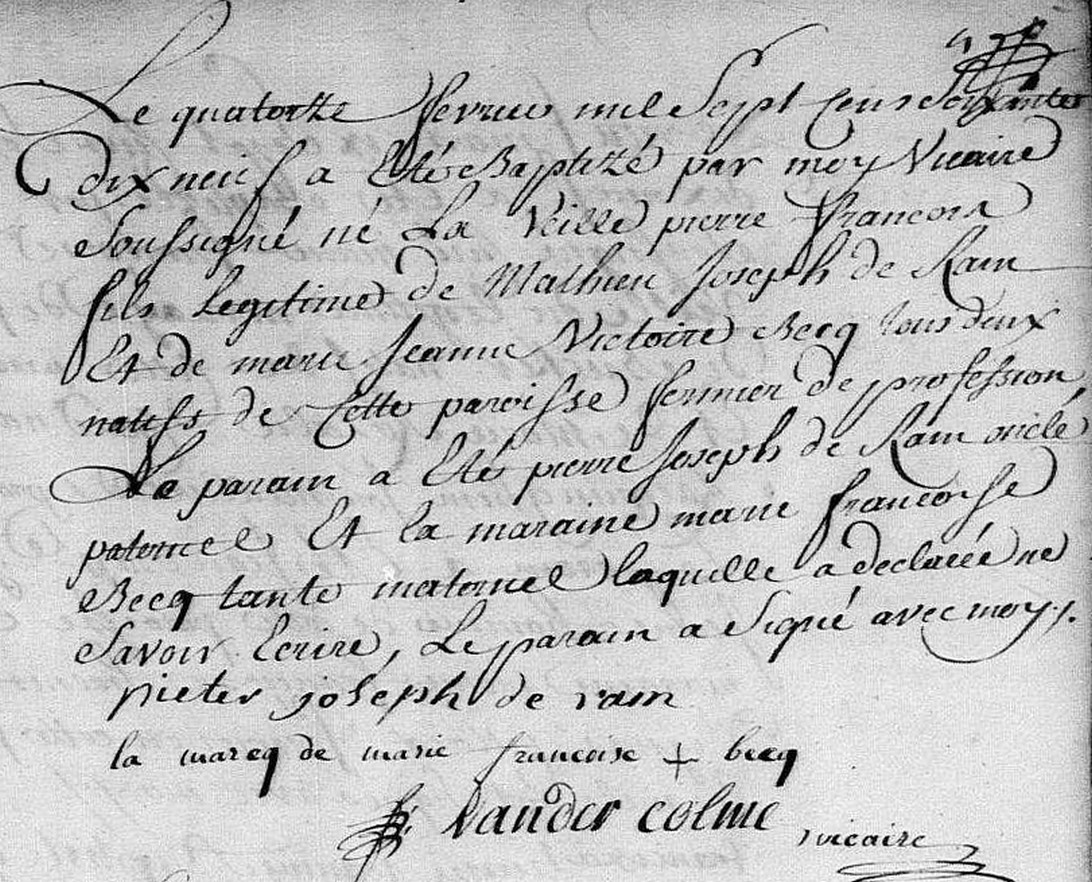 Le quatorze fevrier mil Sept Cens Soixante
dix neuf a Eté Baptizé par moy Vicaire
Soussigné né La Veille pierre francois
fils Legitime de Mathieu Joseph de Ram
Et de marie Jeanne Victoire Becq tous deux
natifs de Cette paroisse fermier de profession,
Le parain a Eté pierre Joseph de Ram oncle
paternel Et la maraine marie francoise
Becq tante maternel laquelle a declaréé ne
Savoir Ecrire, Le parain a Signé avec moy ./.
pieter joseph de ram
la marcq de marie francoise + becq
vander colme vicaire